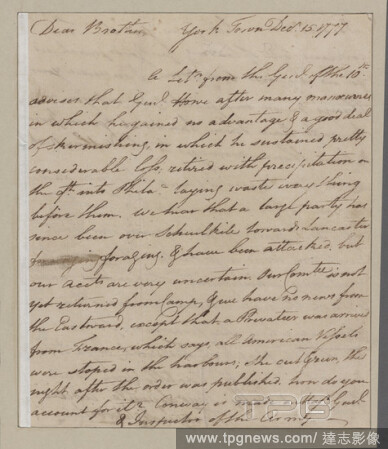 Dear Brother, York Town Decr. 15 1777
a Letr. from the Genl. of the 10th
advises that Genl. Howe after many manoeuvres
in which he gained no advantage & a good deal
of skirmishing, in which he sustained pretty
considerable loss, retired with precipitation on
the 8th into Phila= laying waste every thing
before them. We hear that a large party has
since been over Schuilkile towards Lancaster
foraging, & have been attacked, but
our accts are very uncertain. Our Comtee is not
yet returned from Camp, & we have no news from
the Eastward, except that a Privateer was arrived
from France, which says all American Vessels
were stoped in the harbours, she cut & run, the
night after the order was published, how do you
account for it? Conway is made Genl
& Inspector of the Army
TPG
www.tpgnews.com 達志影像